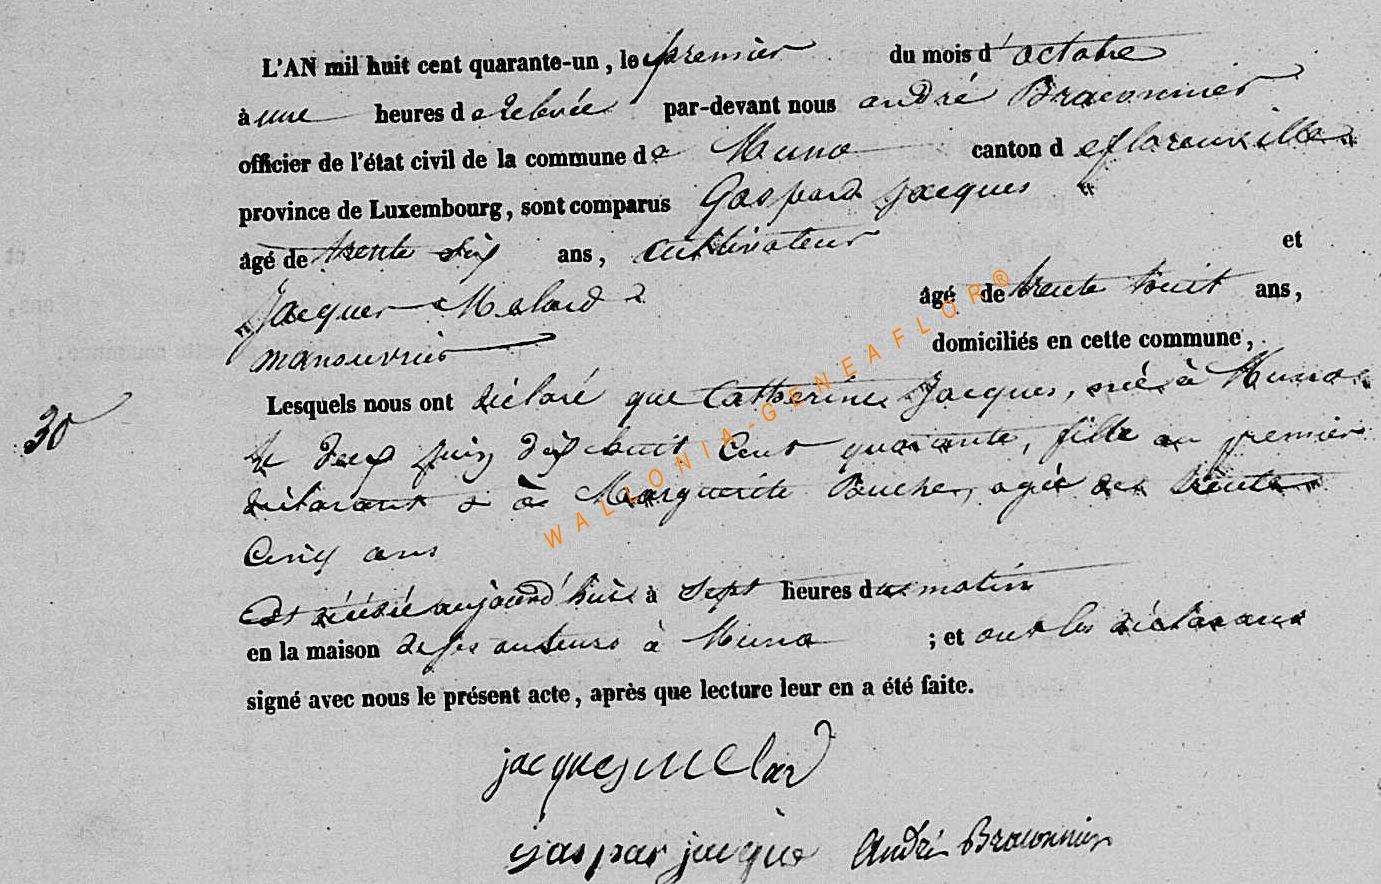 L'AN mil huit cent quarante-un, le premier du mois d'octobre
à une heures de relevée par-devant nous andré Braconnier
officier de l'état civil de la commune de Muno canton de florenville
province de Luxembourg, sont comparus Gaspard Jacques
âgé de trente six ans, cultivateur et
Jacques Melard âgé de trente huit ans,
manouvrier domiciliés en cette commune,
Lesquels nous ont déclaré que Catherine Jacques, née à Muno
30
le deux juin dix huit cent quarante, fille au premier
déclarant & à Marguerite Pucher, agée de trente
cinq ans
Est décédée aujourd'hui à sept heures du matin
en la maison de ses auteurs à Muno ; et ont les déclarants
signé avec nous le présent acte, après que lecture leur en a été faite.
jacques melard
gaspar jacque André Braconnier
WALLONIA-GENEAFLOR®